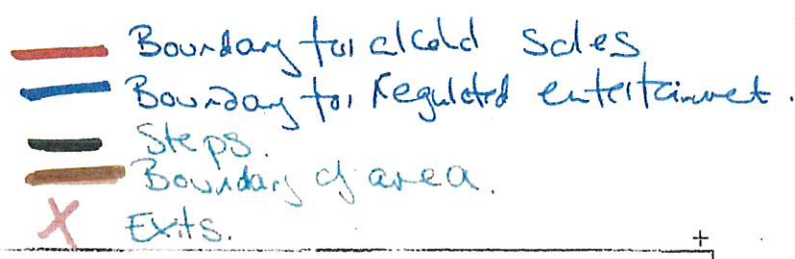 Boundary for alcohol sales
Boundary for Regulated entertainment.
Steps.
Boundary of area.
X Exits.